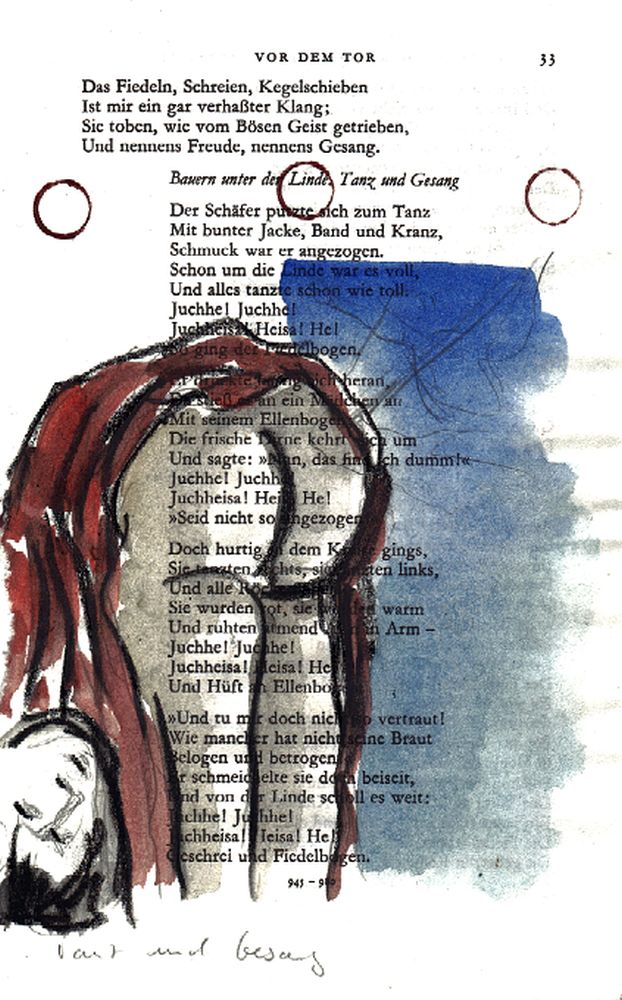 VOR DEM TOR 33
Das Fiedeln, Schreien, Kegelschieben
Ist mir ein gar verhaßter Klang;
Sie toben, wie vom Bösen Geist getrieben,
Und nennens Freude, nennens Gesang.
Bauern unter der Linde, Tanz und Gesang
Der Schäfer putzte sich zum Tanz
Mit bunter Jacke, Band und Kranz,
Schmuck war er angezogen.
Schon um die Linde war es voll,
Und alles tanzte schon wie toll.
Juchhe! Juchhe!
Juchheisa! Heisa! He!
So ging der Fiedelbogen.
Er drückte hastig sich heran,
Da stieß er an ein Mädchen an
Mit seinem Ellenbogen;
Die frische Dirne kehrt sich um
Und sagte: »Nun, das find ich dumm!«
Juchhe! Juchhe!
Juchheisa! Heisa! He!
»Seid nicht so ungezogen
Doch hurtig in dem Kreise gings,
Sie tanzten rechts, sie tanzten links,
Und alle Röcke
Sie wurden rot, sie wurden warm
Und ruhten atmend Arm in Arm –
Juchhe! Juchhe!
Juchheisa! Heisa! He
Und Hüft an Ellenbogen
»Und tu mir doch nicht so vertraut!
Wie mancher hat nicht seine Braut
Belogen und betrogen
Er schmeichelte sie doch beiseit,
Und von der Linde scholl es weit:
Juchhe! Juchhe!
Juchheisa! Heisa! He!
Geschrei und Fiedelbogen.
945 – 980
Tanz und Gesang